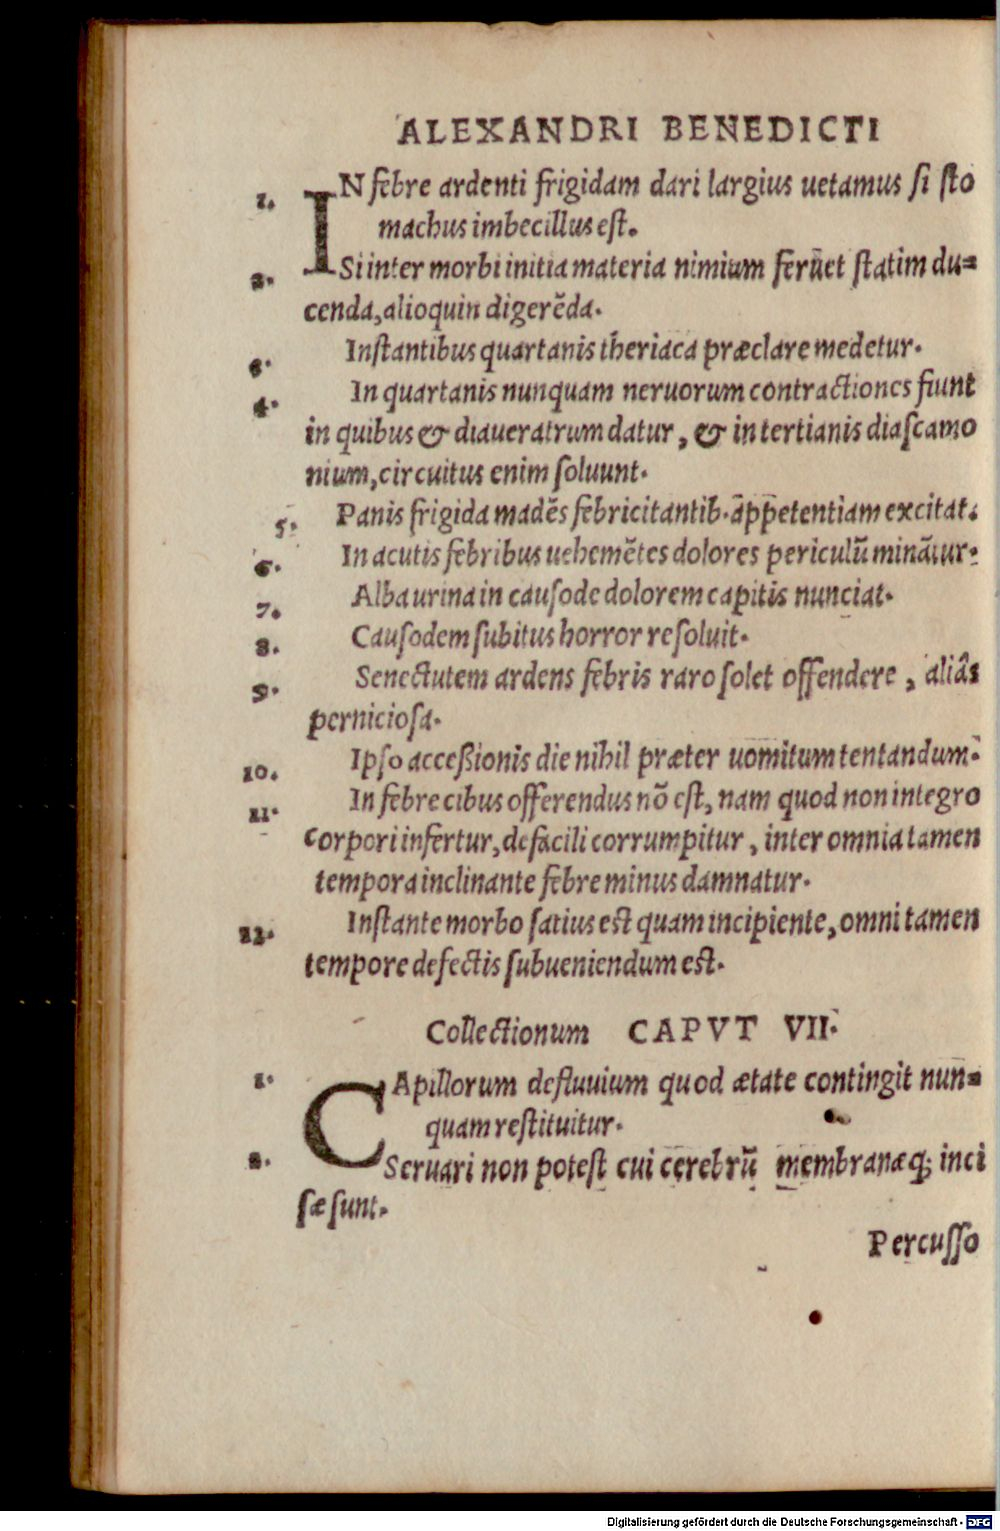 ALEXANDRI BENEDICTI
1. IN febre ardenti frigidam dari largius uetamus si sto
machus imbecillus est.
2. Si inter morbi initia materia nimium feruẽt statim du=
cenda, alioquin digerẽda.
3. Instantibus quartanis theriaca præclare medetur.
4. In quartanis nunquam neruorum contractiones fiunt
in quibus & diaueratrum datur, & in tertianis diascamo
nium, circuitus enim soluunt.
5. Panis frigida madẽs febricitantib. appetentiam excitat.
6. In acutis febribus uehemẽtes dolores periculũ minãtur.
7. Alba urina in causode dolorem capitis nunciat.
8. Causodem subitus horror resoluit.
9. Senectutem ardens febris raro solet offendere, aliâs
perniciosa.
10. Ipso accessionis die nihil præter uomitum tentandum.
11. In febre cibus offerendus nõ est, nam quod non integro
corpori infertur, de facili corrumpitur, inter omnia tamen
tempora inclinante febre minus damnatur.
12. Instante morbo satius est quam incipiente, omni tamen
tempore defectis subueniendum est.
Collectionum CAPVT VII.
1. CApillorum defluuium quod ætate contingit nun=
quam restituitur.
2. Seruari non potest cui cerebrũ membranæq; inci
sæ sunt.
Percusso
Digitalisierung gefördert durch die Deutsche Forschungsgemeinschaft - DFG